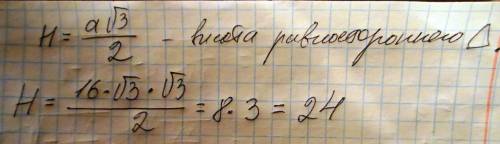 H = a√3/2 - висота рівностороннього △.
H = 16·√3·√3/2 = 8·3 = 24